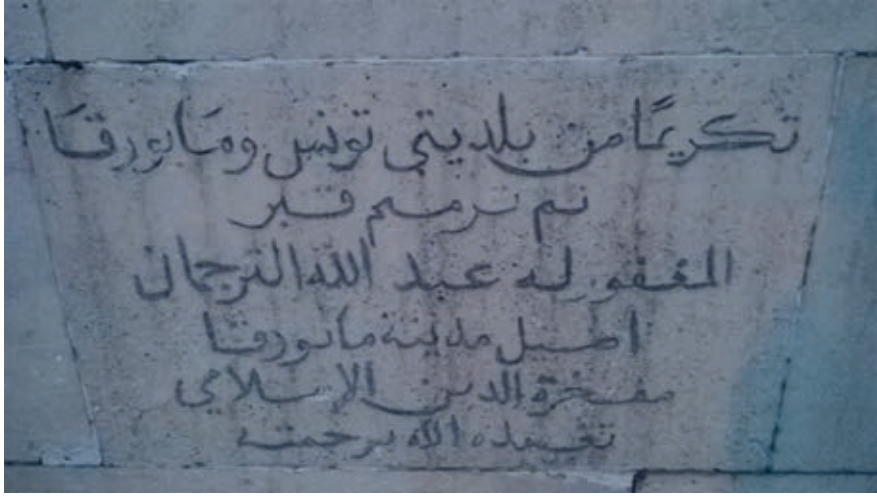 تكريمًا من بلديتي تونس ومايورقا
تم ترميم قبر
المغفور له عبد الله الترجمان
اصيل مدينة مايورقا
مفخرة الدين الإسلامي
تغمده الله برحمته